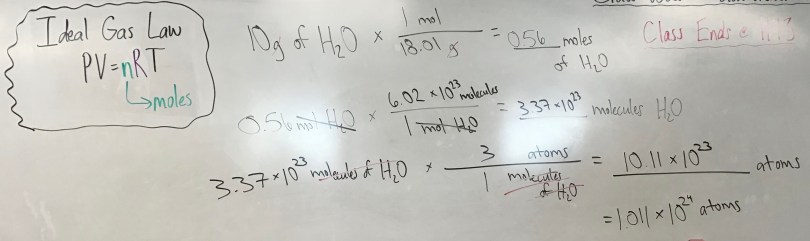 Ideal Gas Law
PV=nRT
↳moles
10g of H₂O × 1 mol / 18.01 g = 0.56 moles of H₂O
Class Ends @
0.56 mol H₂O × 6.02 × 10²³ molecules / 1 mol H₂O = 3.37 × 10²³ molecules H₂O
3.37 × 10²³ molecules of H₂O × 3 atoms / 1 molecules of H₂O = 10.11 × 10²³ atoms
= 1.011 × 10²⁴ atoms